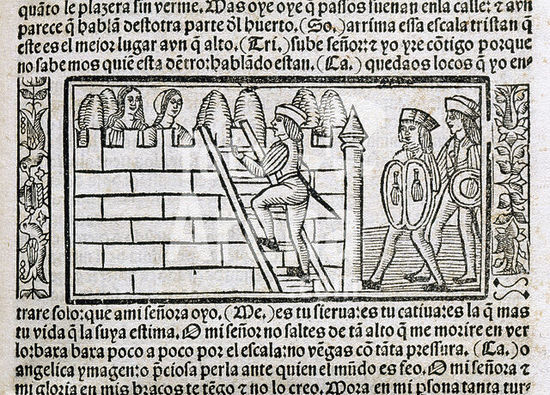 quãto le plazera sin verme. Mas oye oye q̃ passos suenan enla calle: ⁊ avn
parece q̃ hablã destotra parte ðl huerto. (So.) arrima essa escala tristan q̃
este es el mejor lugar avn q̃ alto. (Tri.) sube señor: ⁊ yo yre cõtigo porque
no sabemos quiẽ esta dẽtro: hablãdo estan. (Ca.) quedaos locos q̃ yo en-
trare solo: que a mi señora oyo. (Me.) es tu sierua: es tu catiua: es la q̃ mas
tu vida q̃ la suya estima. O mi señor no saltes de tã alto q̃ me morire en ver
lo: baxa baxa poco a poco por el escala: no vẽgas cõ tãta pressura. (Ca.) o
angelica ymagen: o p̃ciosa perla ante quien el mũdo es feo. O mi señora ⁊
mi gloria en mis braços te tẽgo ⁊ no lo creo. Mora en mi p̃sona tanta tur-